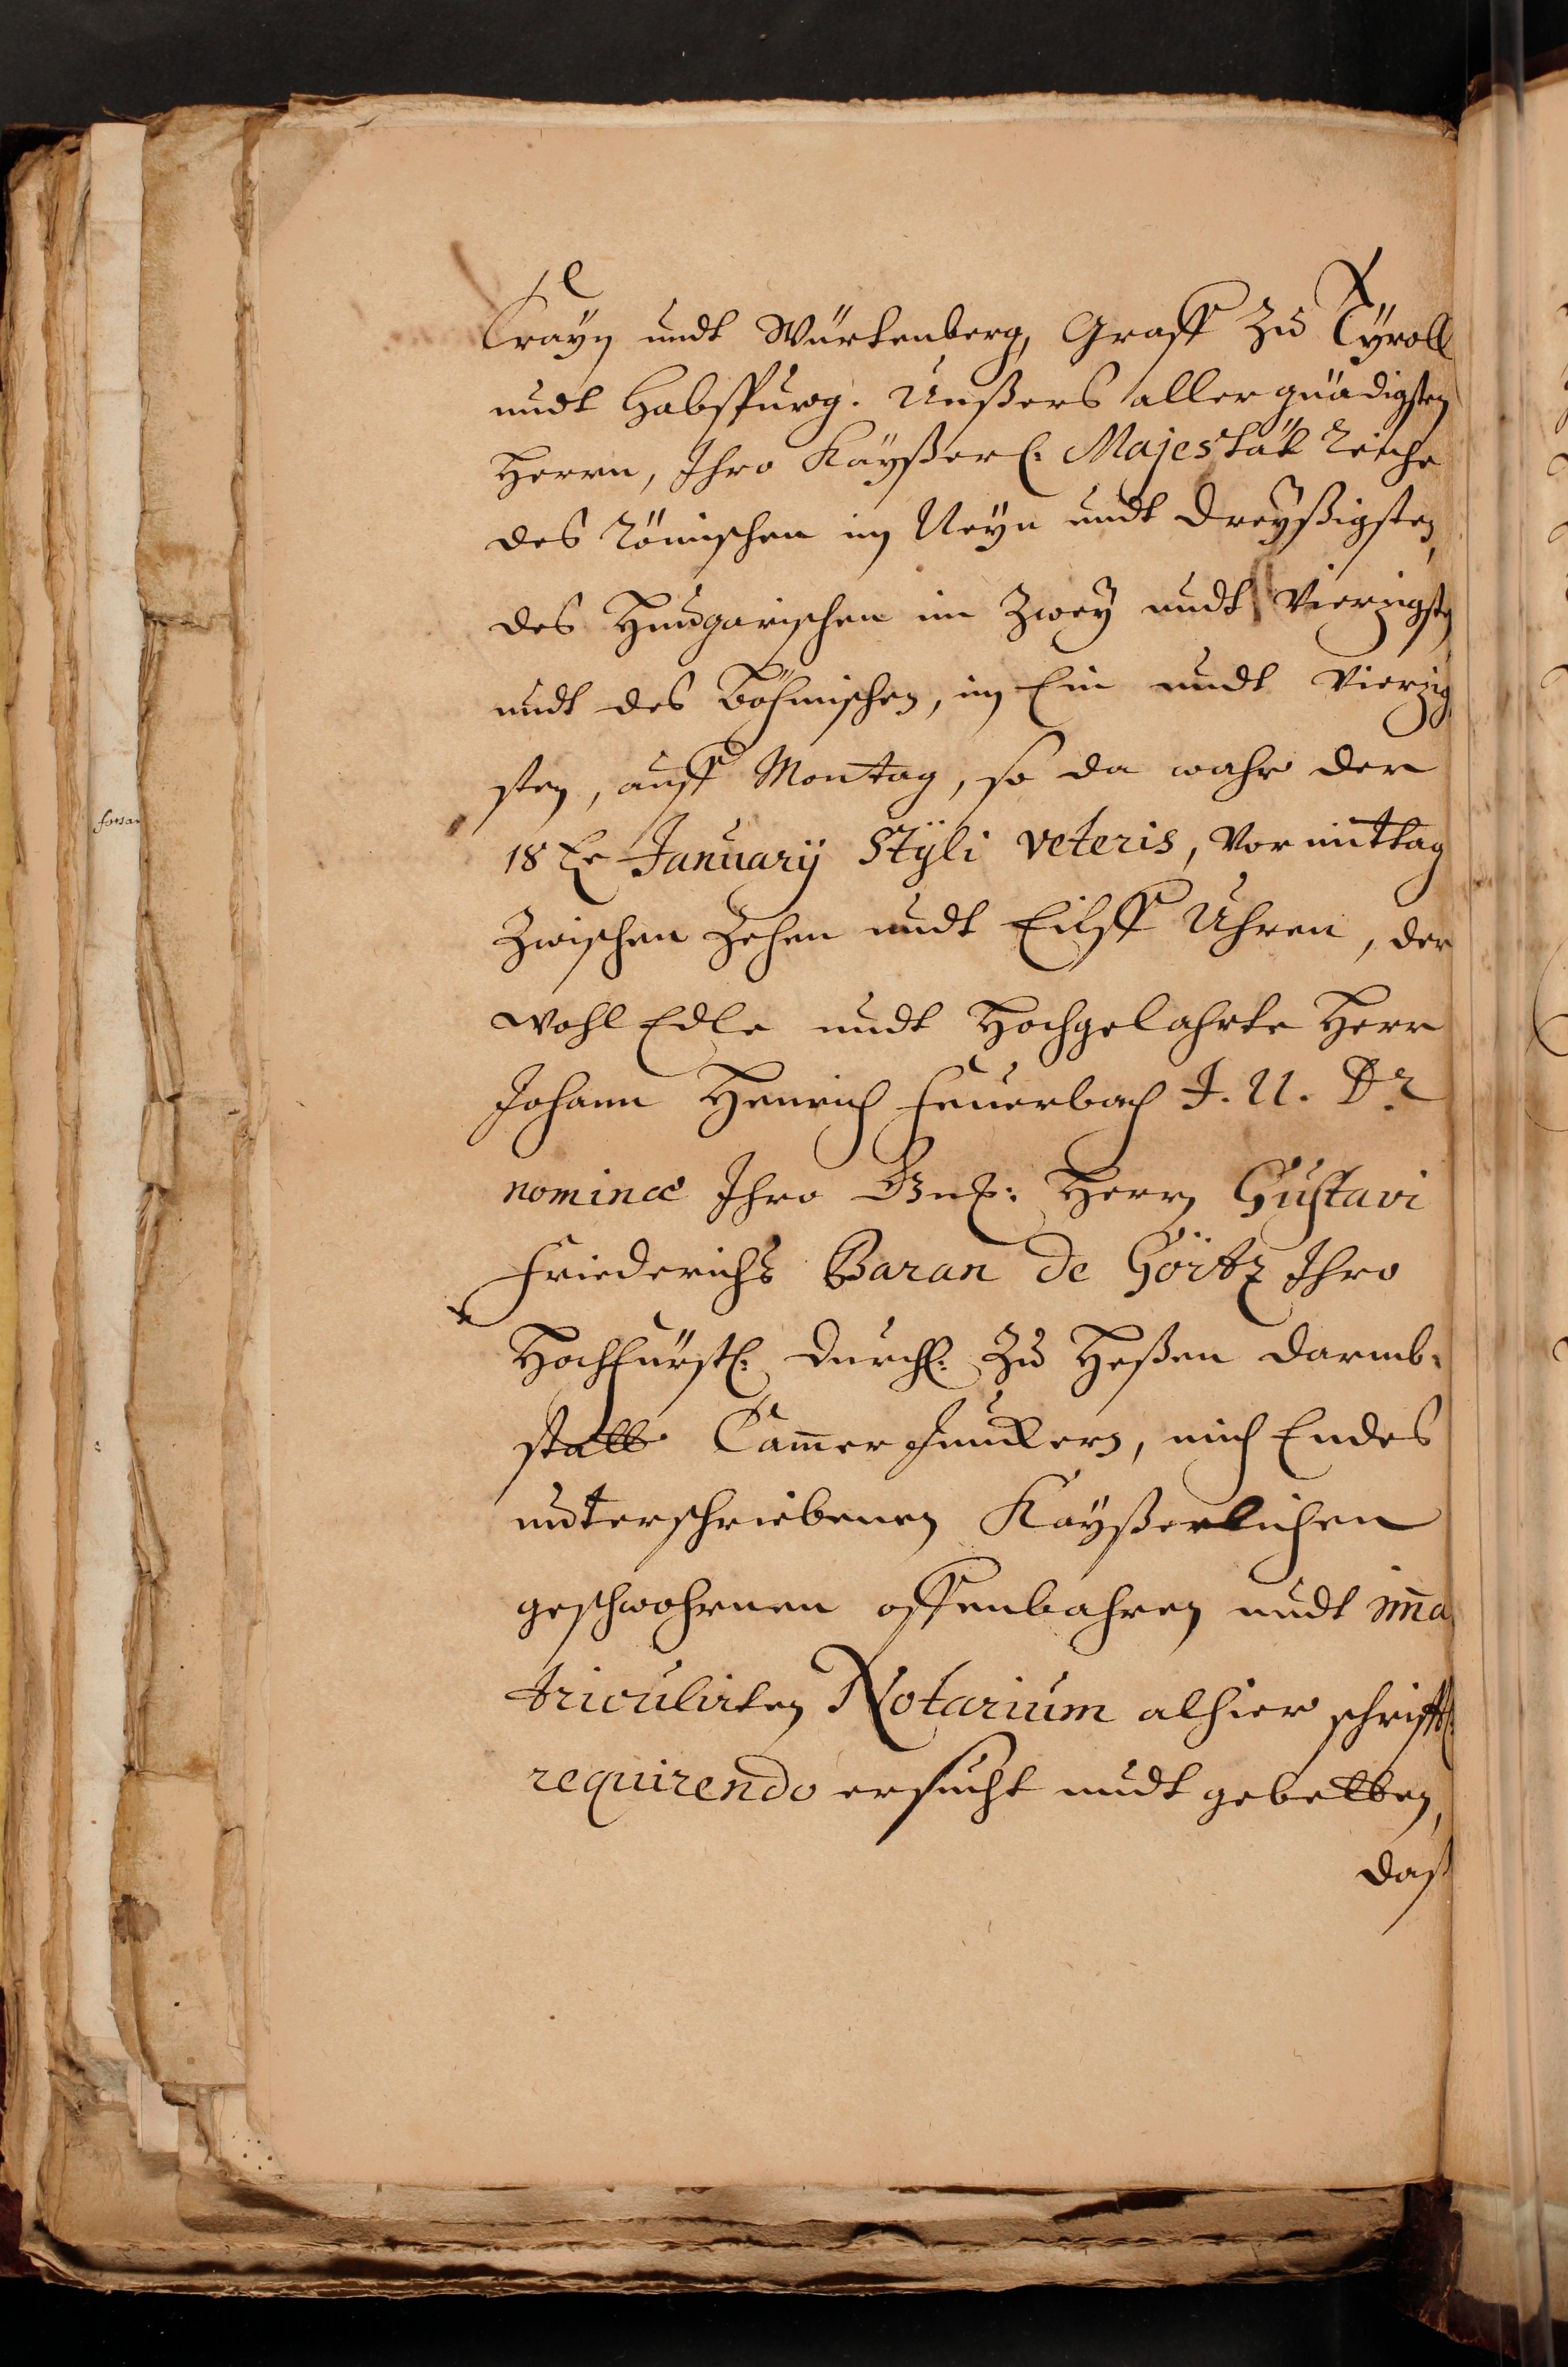 Crayn undt Würtenberg, Graff zu Tÿroll
undt Habspurg. Unßers allergnädigsten
Herrn, Ihro Kaÿßerl: Majestät Reiche
des Römischen im Neyn undt dreyßigsten,
des Hungarischen im Zweÿ undt Vierzigsten
undt des Böhmischen, im Ein undt Vierzig
sten, auff Montag, so da wahr der
18te January Stÿli veteris, Vormittag
Zwischen Zehen undt Eilff Uhren, der
WohlEdle undt Hochgelahrte Herr
Johann Henrich Feuerbach J. U. Dr.
nomine Ihro Gnd: Herrn Gustavi
Friederichs Baran de Görtz Ihro
Hochfürstl: Durchl: zu Heßen Darmb-
statt Cammer Junckern, mich Endes
unterschriebenen Kaÿßerlichen
geschwohrnen offenbahren undt imma
triculirten Notarium alhier schrifftl:
requirendo ersucht undt gebetten,
daß